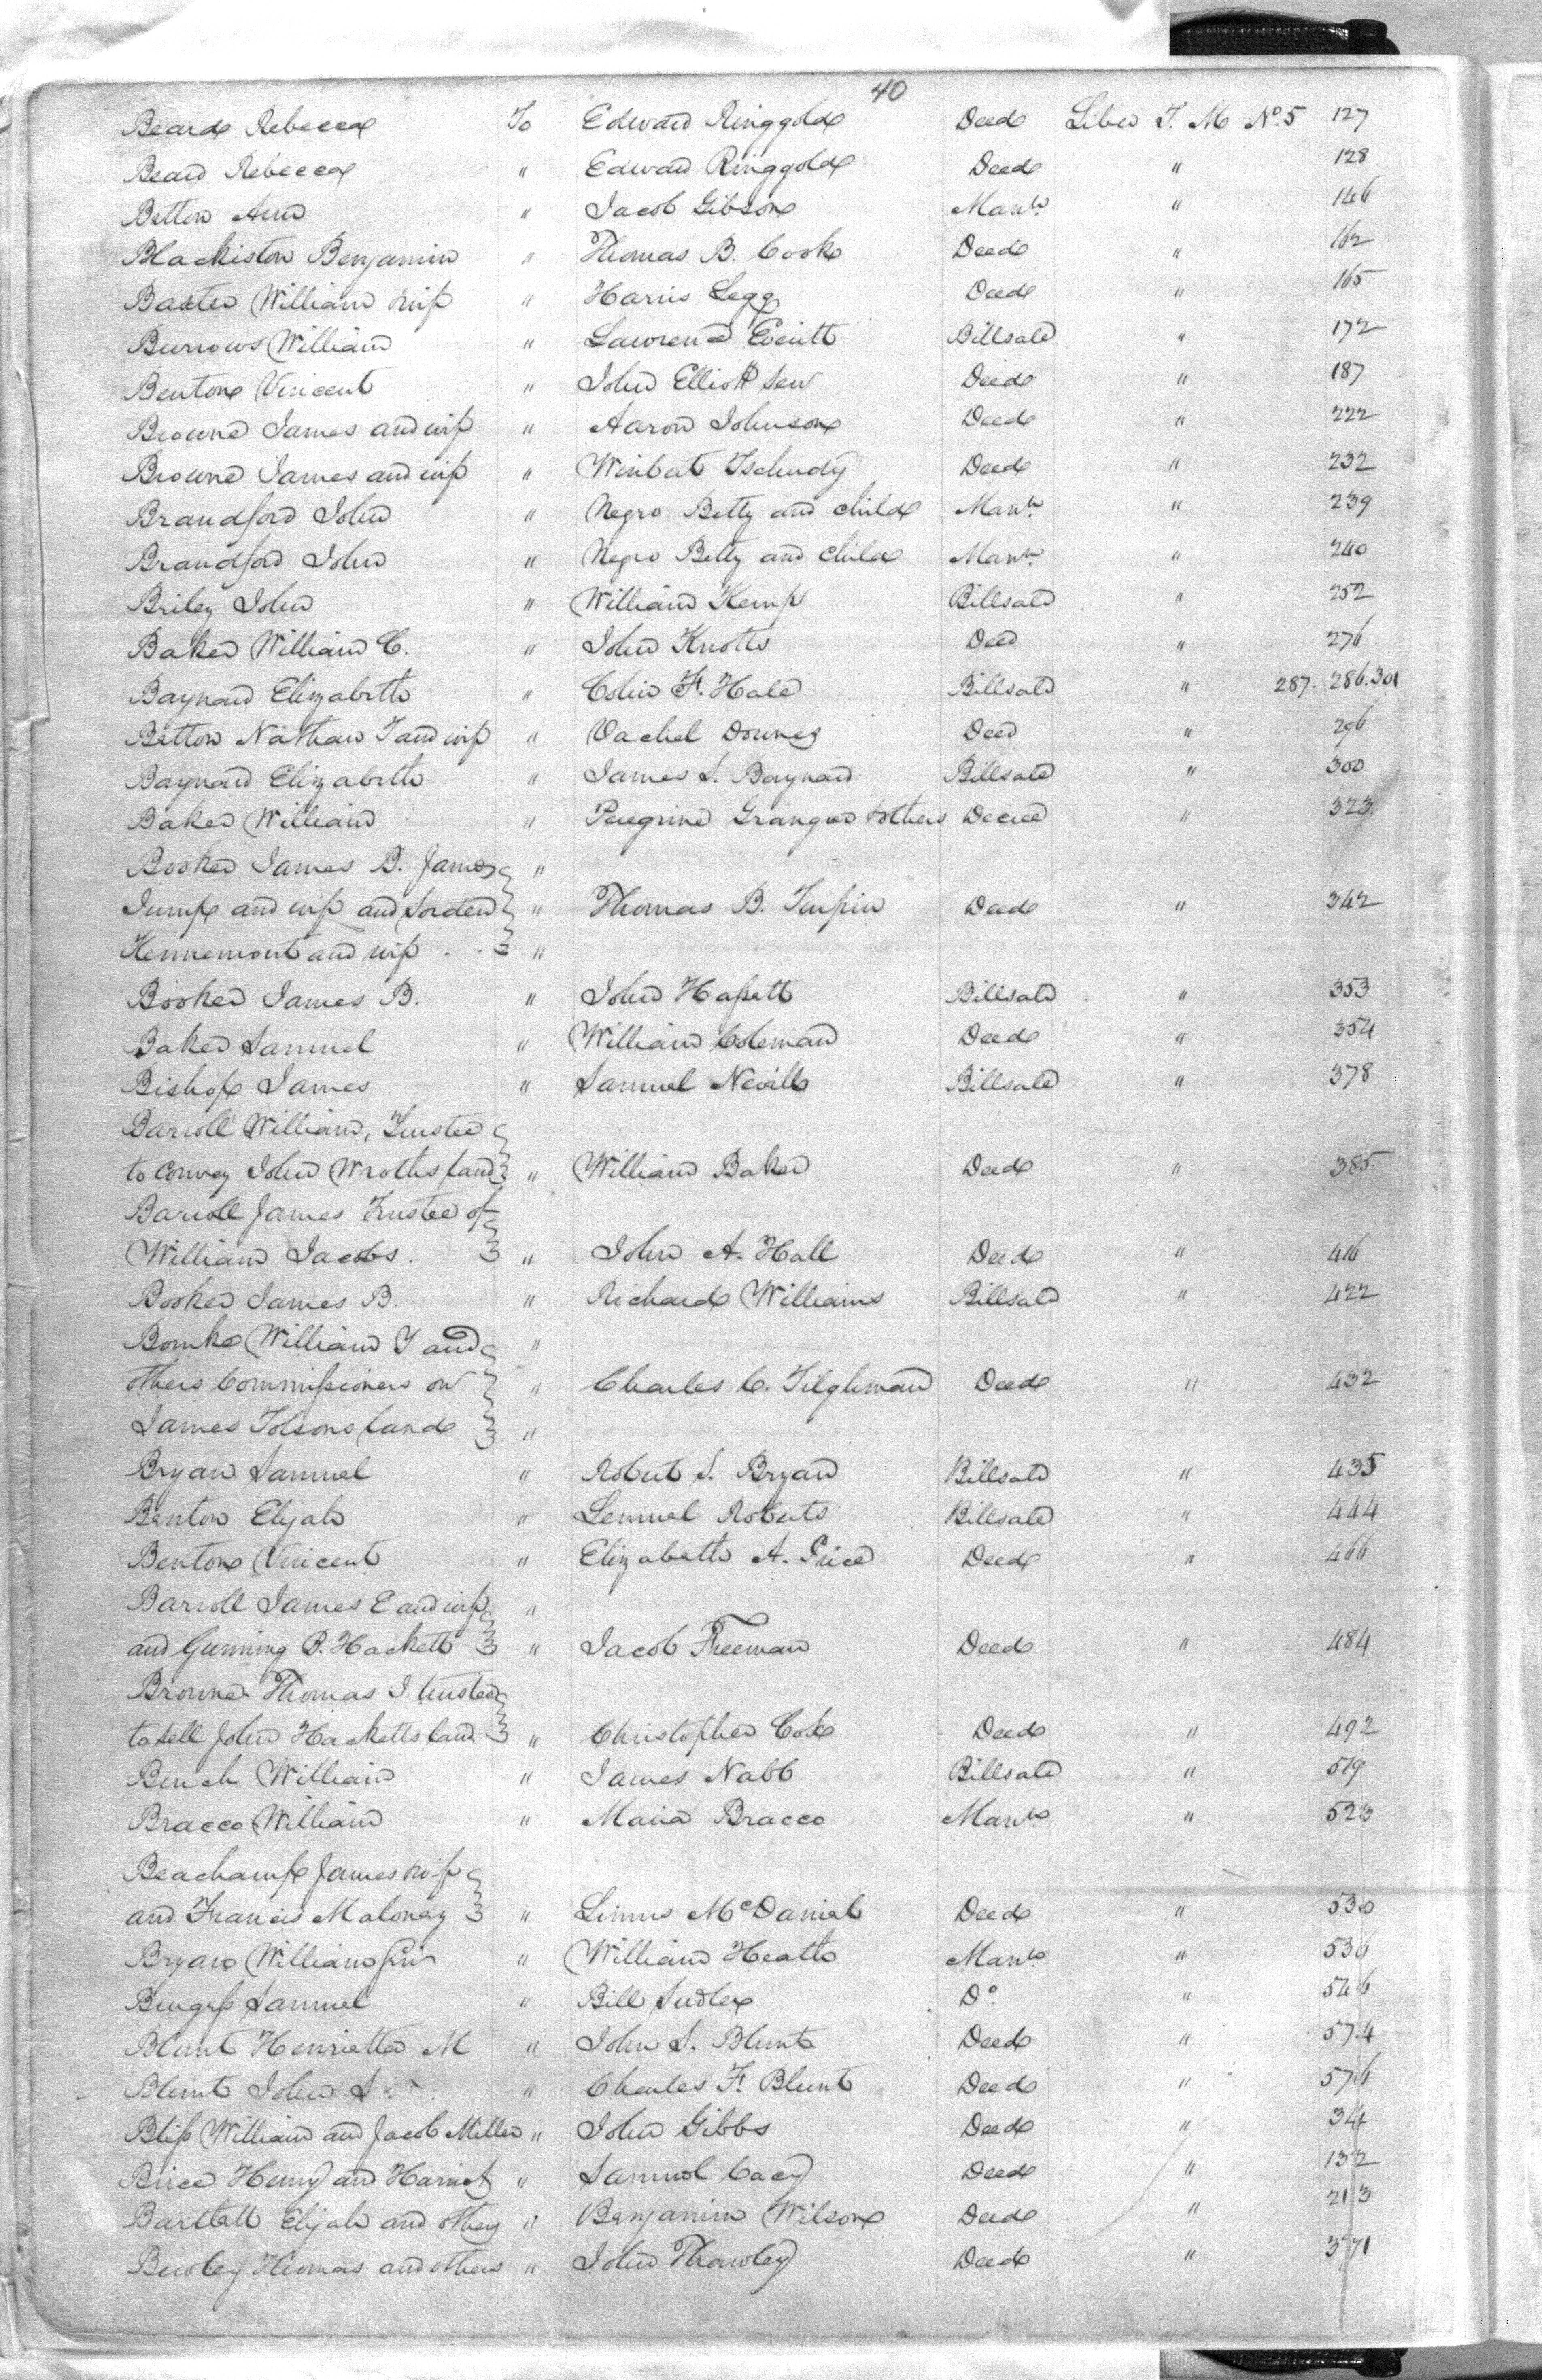 40
Beard Rebecca To Edward Ringgold Deed Liber T. M No. 5 127
Beard Rebecca " Edward Ringgold Deed " 128
Betton Ann " Jacob Gibson Mann " 146
Blackiston Benjamin " Thomas B. Cook Deed " 162
Baxter William wife " Harris Legg Deed " 165
Burrows William " Lawrence Everitt Billsale " 172
Benton Vincent " John Elliott Sen Deed " 187
Browne James and wife " Aaron Johnson Deed " 222
Browne James and wife " Winbert Tschudy Deed " 232
Brandford John " Negro Betty and child Mann " 239
Brandford John " Negro Betty and child Mann " 240
Briley John " William Kemp Billsale " 252
Baker William C. " John Knotts Deed " 276
Baynard Elizabeth " Colin F. Hale Billsale " 287. 286. 301
Betton Nathan T and wife " Vachel Downes Deed " 296
Baynard Elizabeth " James S. Baynard Billsale " 300
Baker William " Peregrine Granger & others Decree " 323
Booker James B. James "
Jump and wife and Sorden " Thomas B. Turpin Deed " 342
Hennemont and wife . . "
Booker James B. " John Hassett Billsale " 353
Baker Samuel " William Coleman Deed " 354
Bishop James " Samuel Nevill Billsale " 378
Barroll William, Trustee
to convey John Wroths land " William Baker Deed " 385
Barroll James Trustee of
William Jacobs. " John A. Hall Deed " 416
Booker James B. " Richard Williams Billsale " 422
Bourke William Y and "
others Commissioners on " Charles C. Tilghman Deed " 432
James Tolsons land "
Bryan Samuel " Robert S. Bryan Billsale " 435
Benton Elijah " Lemuel Roberts Billsale " 444
Benton Vincent " Elizabeth A. Price Deed " 466
Barroll James E and wife "
and Gunning B. Hackett " Jacob Freeman Deed " 484
Browne Thomas I. trustee
to sell John Hacketts land " Christopher Cox Deed " 492
Burch William " James Nabb Billsale " 519
Bracco William " Maria Bracco Mann " 523
Beachamp James wife
and Francis Maloney " Linus McDaniel Deed " 530
Bryan William " William Heath Mann " 536
Burgess Samuel " Bill Sudler Do. " 546
Blunt Henrietta M " John S. Blunt Deed " 574
Blunt John S " Charles F. Blunt Deed " 576
Bliss William and Jacob Miller " John Gibbs Deed " 34
Brice Henry and Harriet " Samuel Cacy Deed " 132
Bartlett Elijah and others " Benjamin Wilson Deed " 213
Bewley Thomas and others " John Thawley Deed " 371